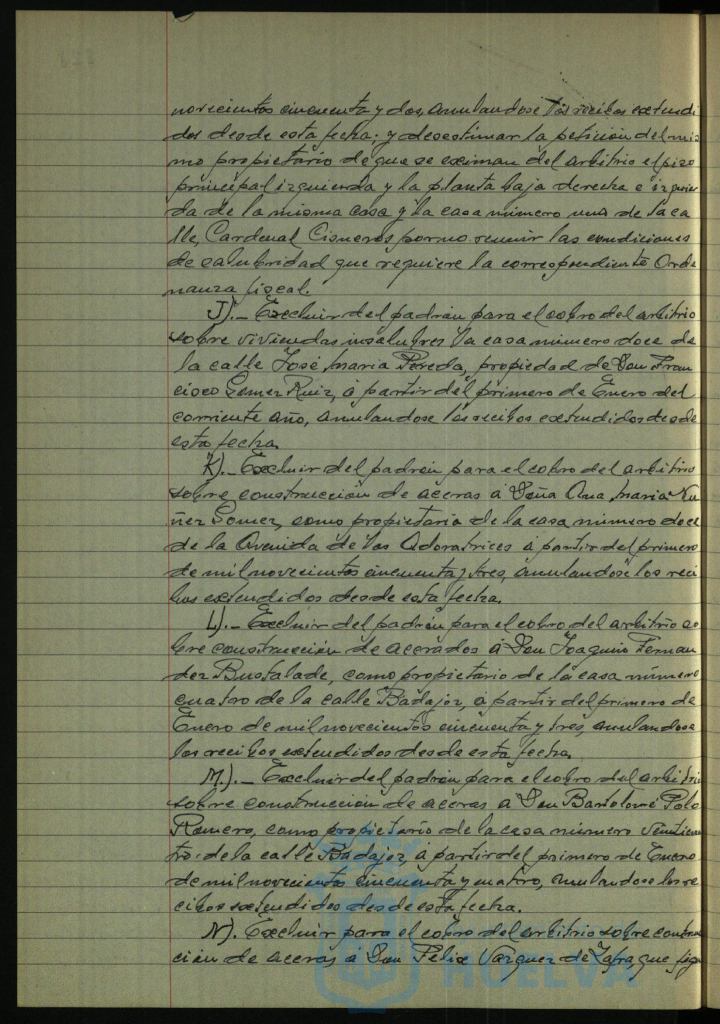 novecientos cincuenta y dos, anulandose los recibos extendi
dos desde esta fecha; y desestimar la petición del mis
mo propietario de que se eximan del arbitrio el piso
principal izquierda y la planta baja derecha e izquier
da de la misma casa y la casa número uno de la ca
lle, Cardenal Cisneros por no reunir las condiciones
de salubridad que requiere la correspondiente Orde
nanza fiscal.
J).- Excluir del padrón para el cobro del arbitrio
sobre viviendas insalubres la casa número doce de
la calle José María Pereda, propiedad de Don Fran
cisco Gomez Ruiz, á partir del primero de Enero del
corriente año, anulandose los recibos extendidos desde
esta fecha.
K).- Excluir del padrón para el cobro del arbitrio
sobre construcción de aceras á Doña Ana María Nu
ñez Gomez, como propietaria de la casa número doce
de la Avenida de las Adoratrices á partir del primero
de mil novecientos cincuenta y tres, anulandose los reci
bos extendidos desde esta fecha.
L).- Excluir del padrón para el cobro del arbitrio so
bre construcción de acerados á Don Joaquin Fernan
dez Bustalade, como propietario de la casa número
cuatro de la calle Badajoz, á partir del primero de
Enero de mil novecientos cincuenta y tres, anulandose
los recibos extendidos desde esta fecha.
M).- Excluir del padrón para el cobro del arbitrio
sobre construcción de aceras a Don Bartolomé Polo
Romero, como propietario de la casa número veinticua
tro de la calle Badajoz, á partir del primero de Enero
de mil novecientos cincuenta y cuatro, anulandose los re
cibos extendidos desde esta fecha.
N). Excluir para el cobro del arbitrio sobre construc
ción de aceras á Don Felix Vazquez de Zafra que figu
HUELVA